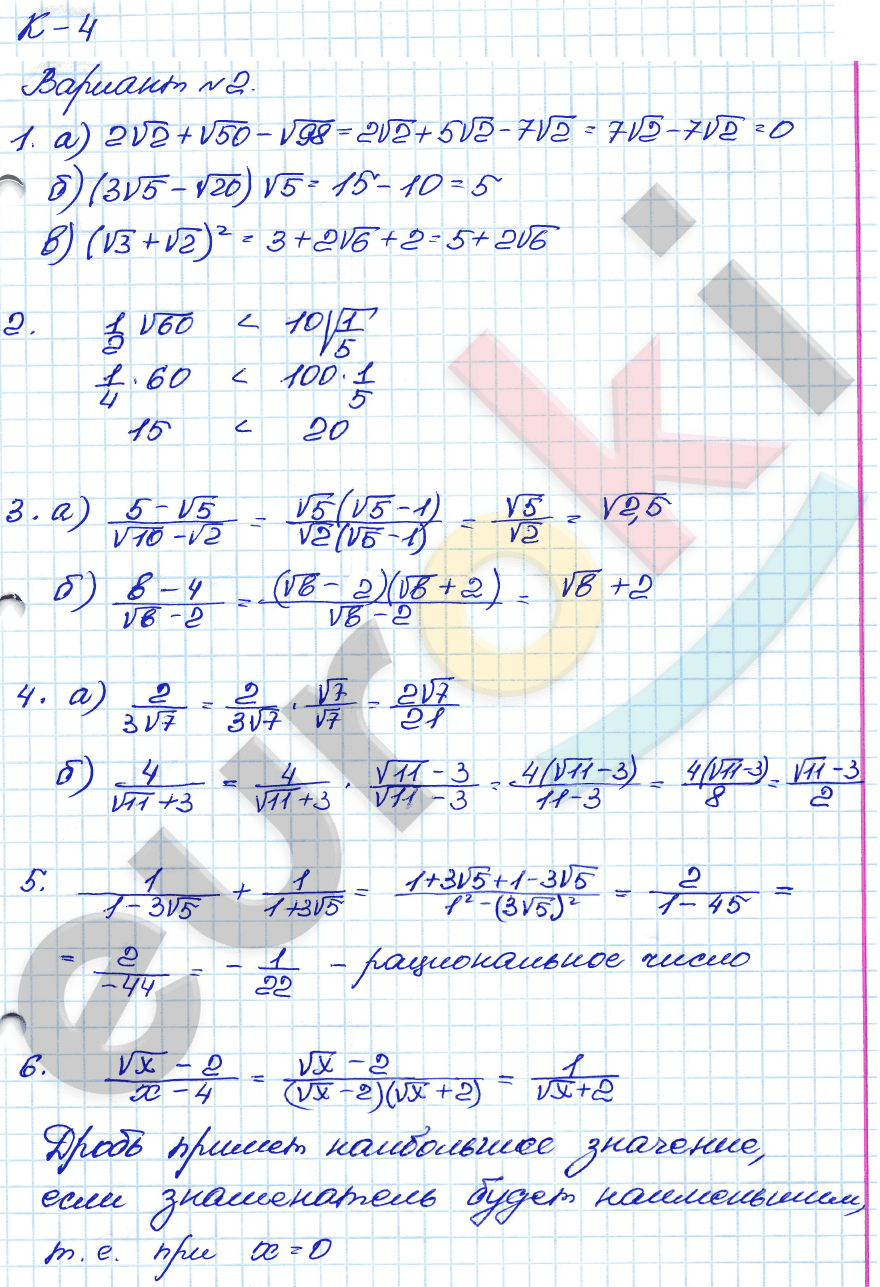 К – 4
Вариант №2.
1. а) 2√2 + √50 – √98 = 2√2 + 5√2 – 7√2 = 7√2 – 7√2 = 0
б) (3√5 – √20) √5 = 15 – 10 = 5
в) (√3 + √2)² = 3 + 2√6 + 2 = 5 + 2√6
2. 1/2 √60 < 10√(1/5)
1/4 · 60 < 100 · 1/5
15 < 20
3. а) (5 – √5)/(√10 – √2) = (√5(√5 – 1))/(√2(√5 – 1)) = √5/√2 = √2,5
б) (в – 4)/(√в – 2) = ((√в – 2)(√в + 2))/(√в – 2) = √в + 2
4. а) 2/(3√7) = 2/(3√7) · √7/√7 = 2√7/21
б) 4/(√11 + 3) = 4/(√11 + 3) · (√11 – 3)/(√11 – 3) = (4(√11 – 3))/(11 – 3) = (4(√11 – 3))/8 = (√11 – 3)/2
5. 1/(1 – 3√5) + 1/(1 + 3√5) = (1 + 3√5 + 1 – 3√5)/(1² – (3√5)²) = 2/(1 – 45) =
= 2/(–44) = – 1/22 – рациональное число
6. (√x – 2)/(x – 4) = (√x – 2)/((√x – 2)(√x + 2)) = 1/(√x + 2)
Дробь примет наибольшее значение,
если знаменатель будет наименьшим,
т. е. при x = 0
euroki